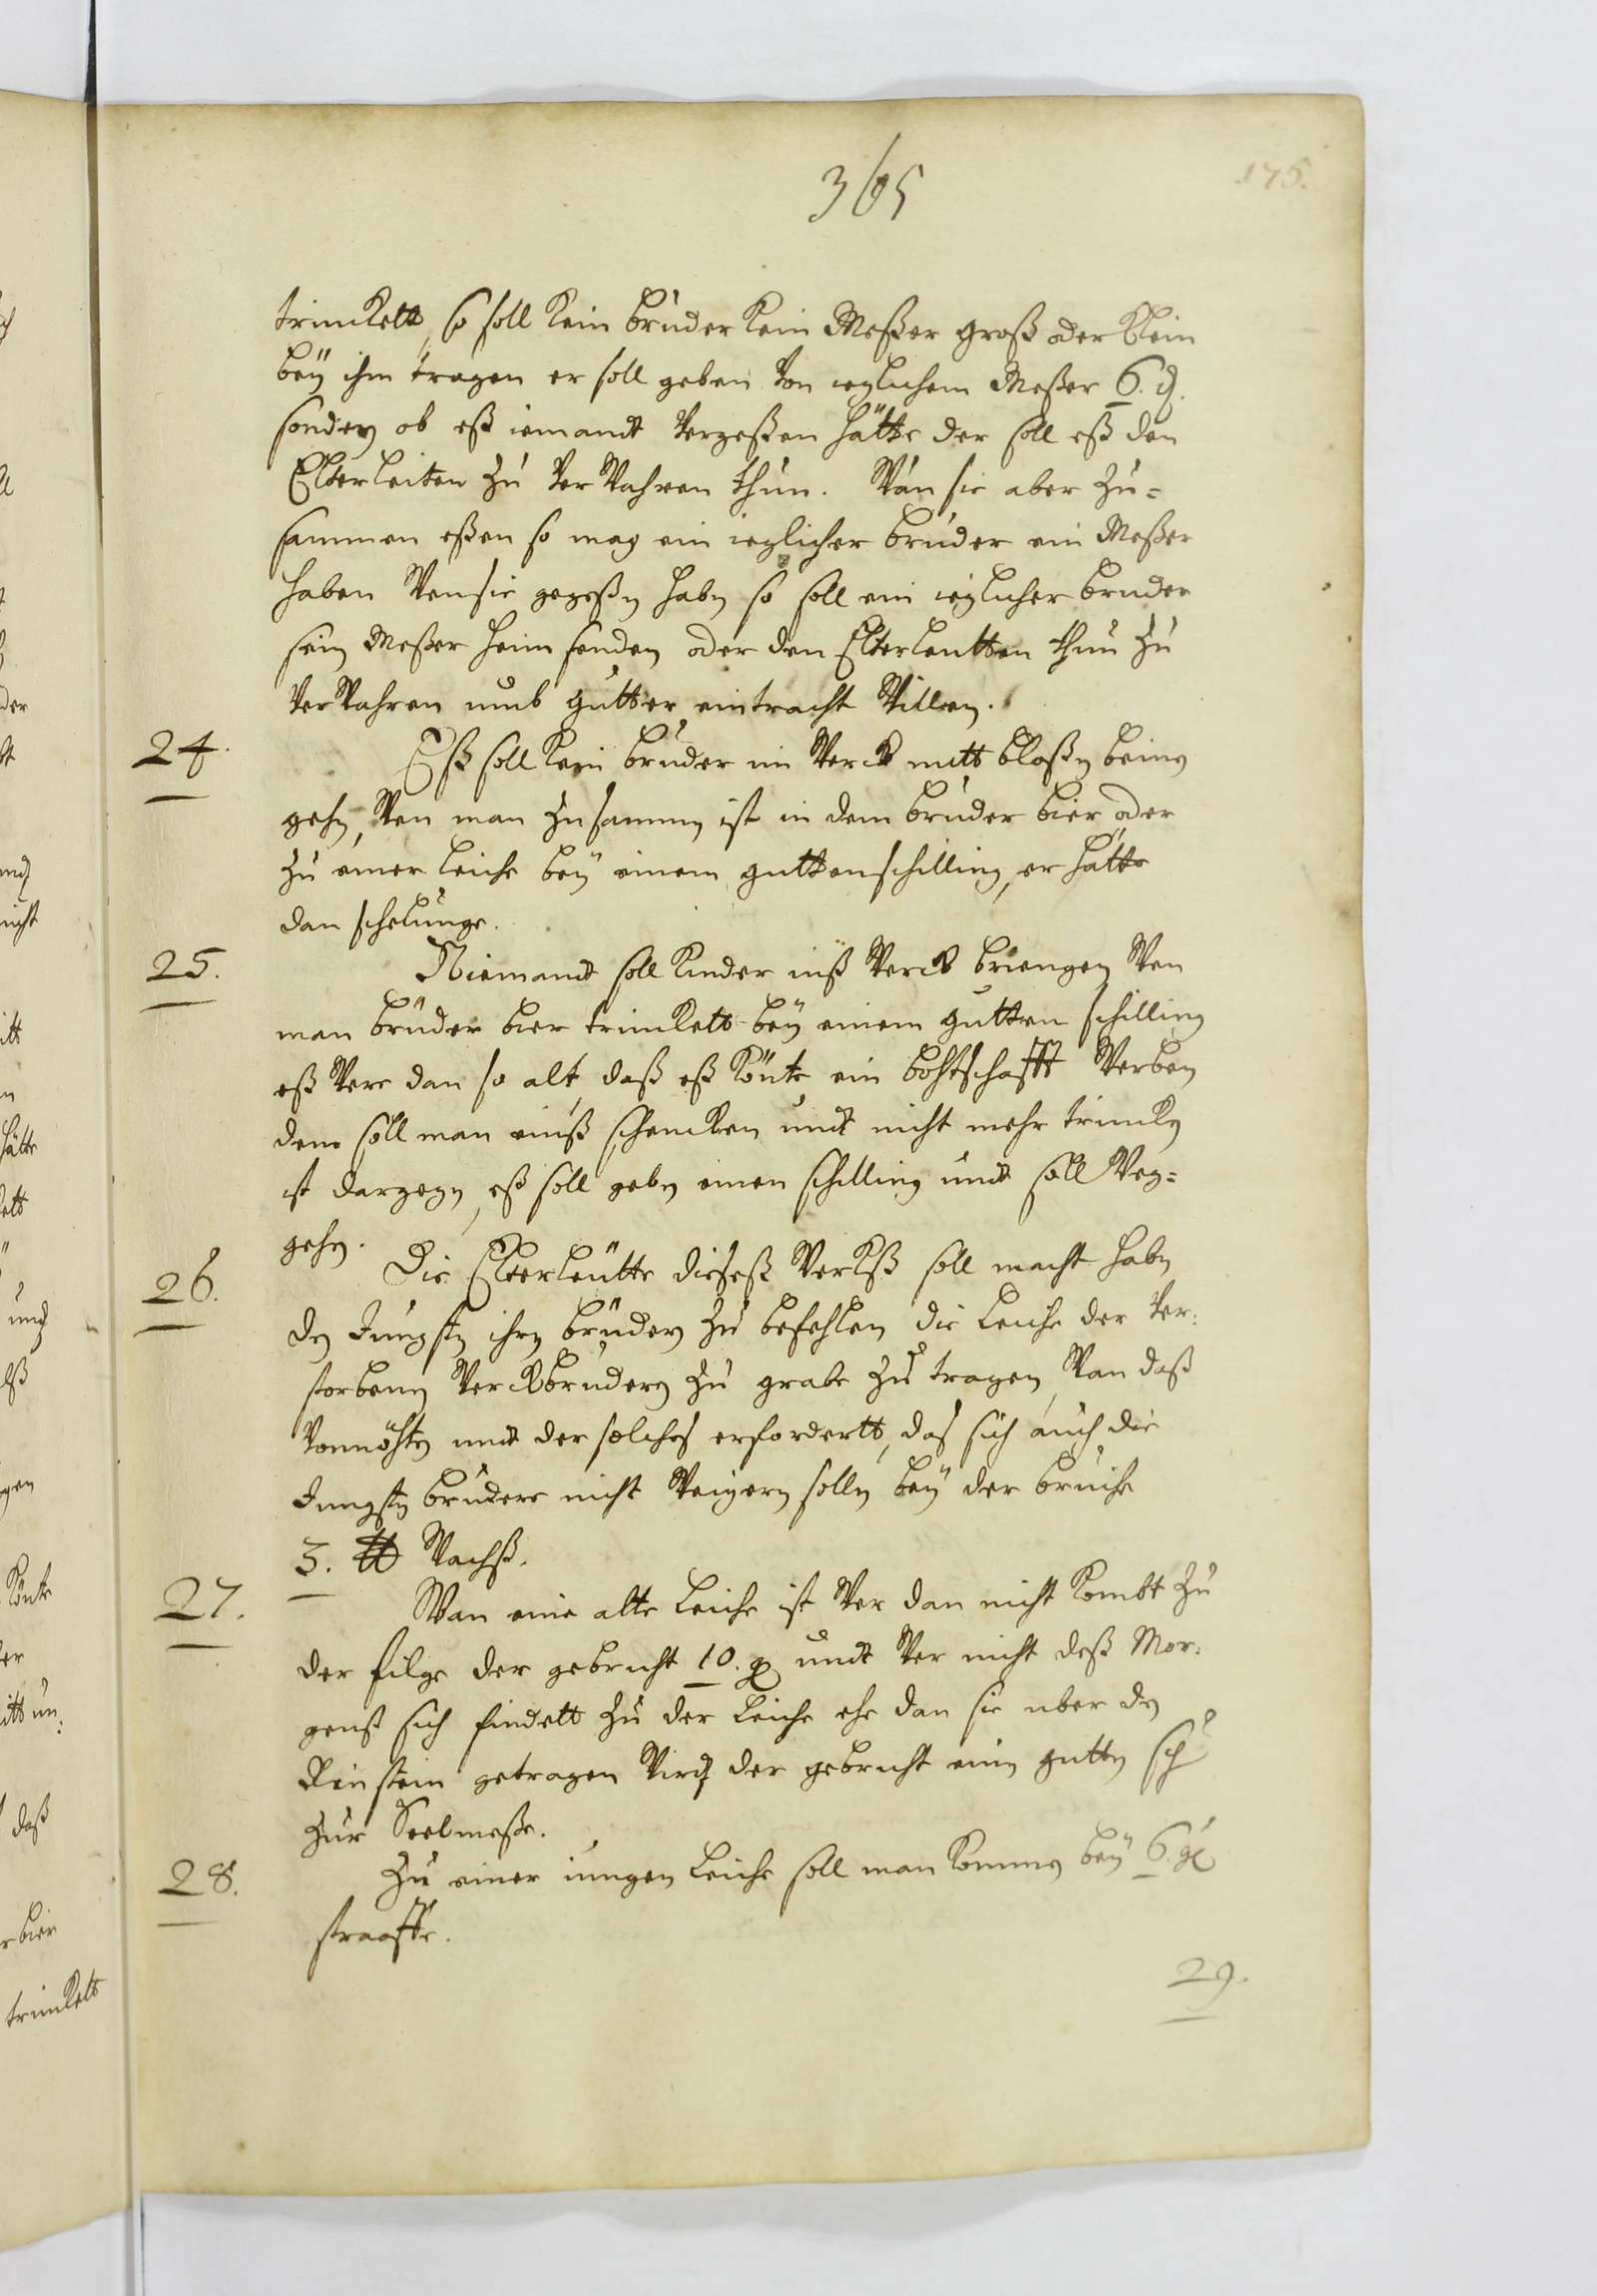 365
175.
trincket, so soll kein bruder kein Meßer groß oder klein
beÿ ihm tragen er soll geben von ieglichem Meßer 6. d.
sondern ob eß iemandt vergeßen hätte der soll eß den
Elterleiten zu verwahren thun. Wan sie aber zu=
sammen eßen so mag ein ieglicher bruder ein Meßer
haben Wen sie gegeßen haben so soll ein ieglicher bruder
sein Meßer heim senden oder den Elterleutten thun zu
verwahren umb gutter eintracht Willen.
24. Eß soll kein bruder im Werck mitt bloßen beinen
gehen, Wen man zusammen ist in dem bruder bier oder
zu einer leiche beÿ einem guttenschilling, er hätte
dan schelunge.
25. Niemandt soll kinder inß Werck briengen Wen
man brüder bier trinckett beÿ einem gutten schilling
eß Were dan so alt, daß eß könte ein bohtschafft Werben
dem soll man einß schencken undt nicht mehr trincken
ist dargegen, eß soll geben einen schilling undt soll Weg=
gehen.
26. Die Elterleutte dieseß Werckß soll macht haben
den Jungsten ihren brüdern zu befehlen die Leiche der ver:
storbenen Werckbrudern zu grabe zu tragen, Wan daß
vonnöhten undt der solches erfordertt, das sich auch die
Jungsten brudere nicht Weigern sollen beÿ der brüche
3. ℔ Wachß.
27. Wan eine alte Leiche ist Wer dan nicht kombt zu
der filge der gebricht 10. undt Wer nicht deß Mor:
genß sich findett zu der Leiche ehe dan sie uber den
Rinstein getragen Wirdt der gebricht einen gutten sch
zur Seelmeße.
28. Zu einer iungen Leiche soll man kommen beÿ 6. gl
straaffe.
29.